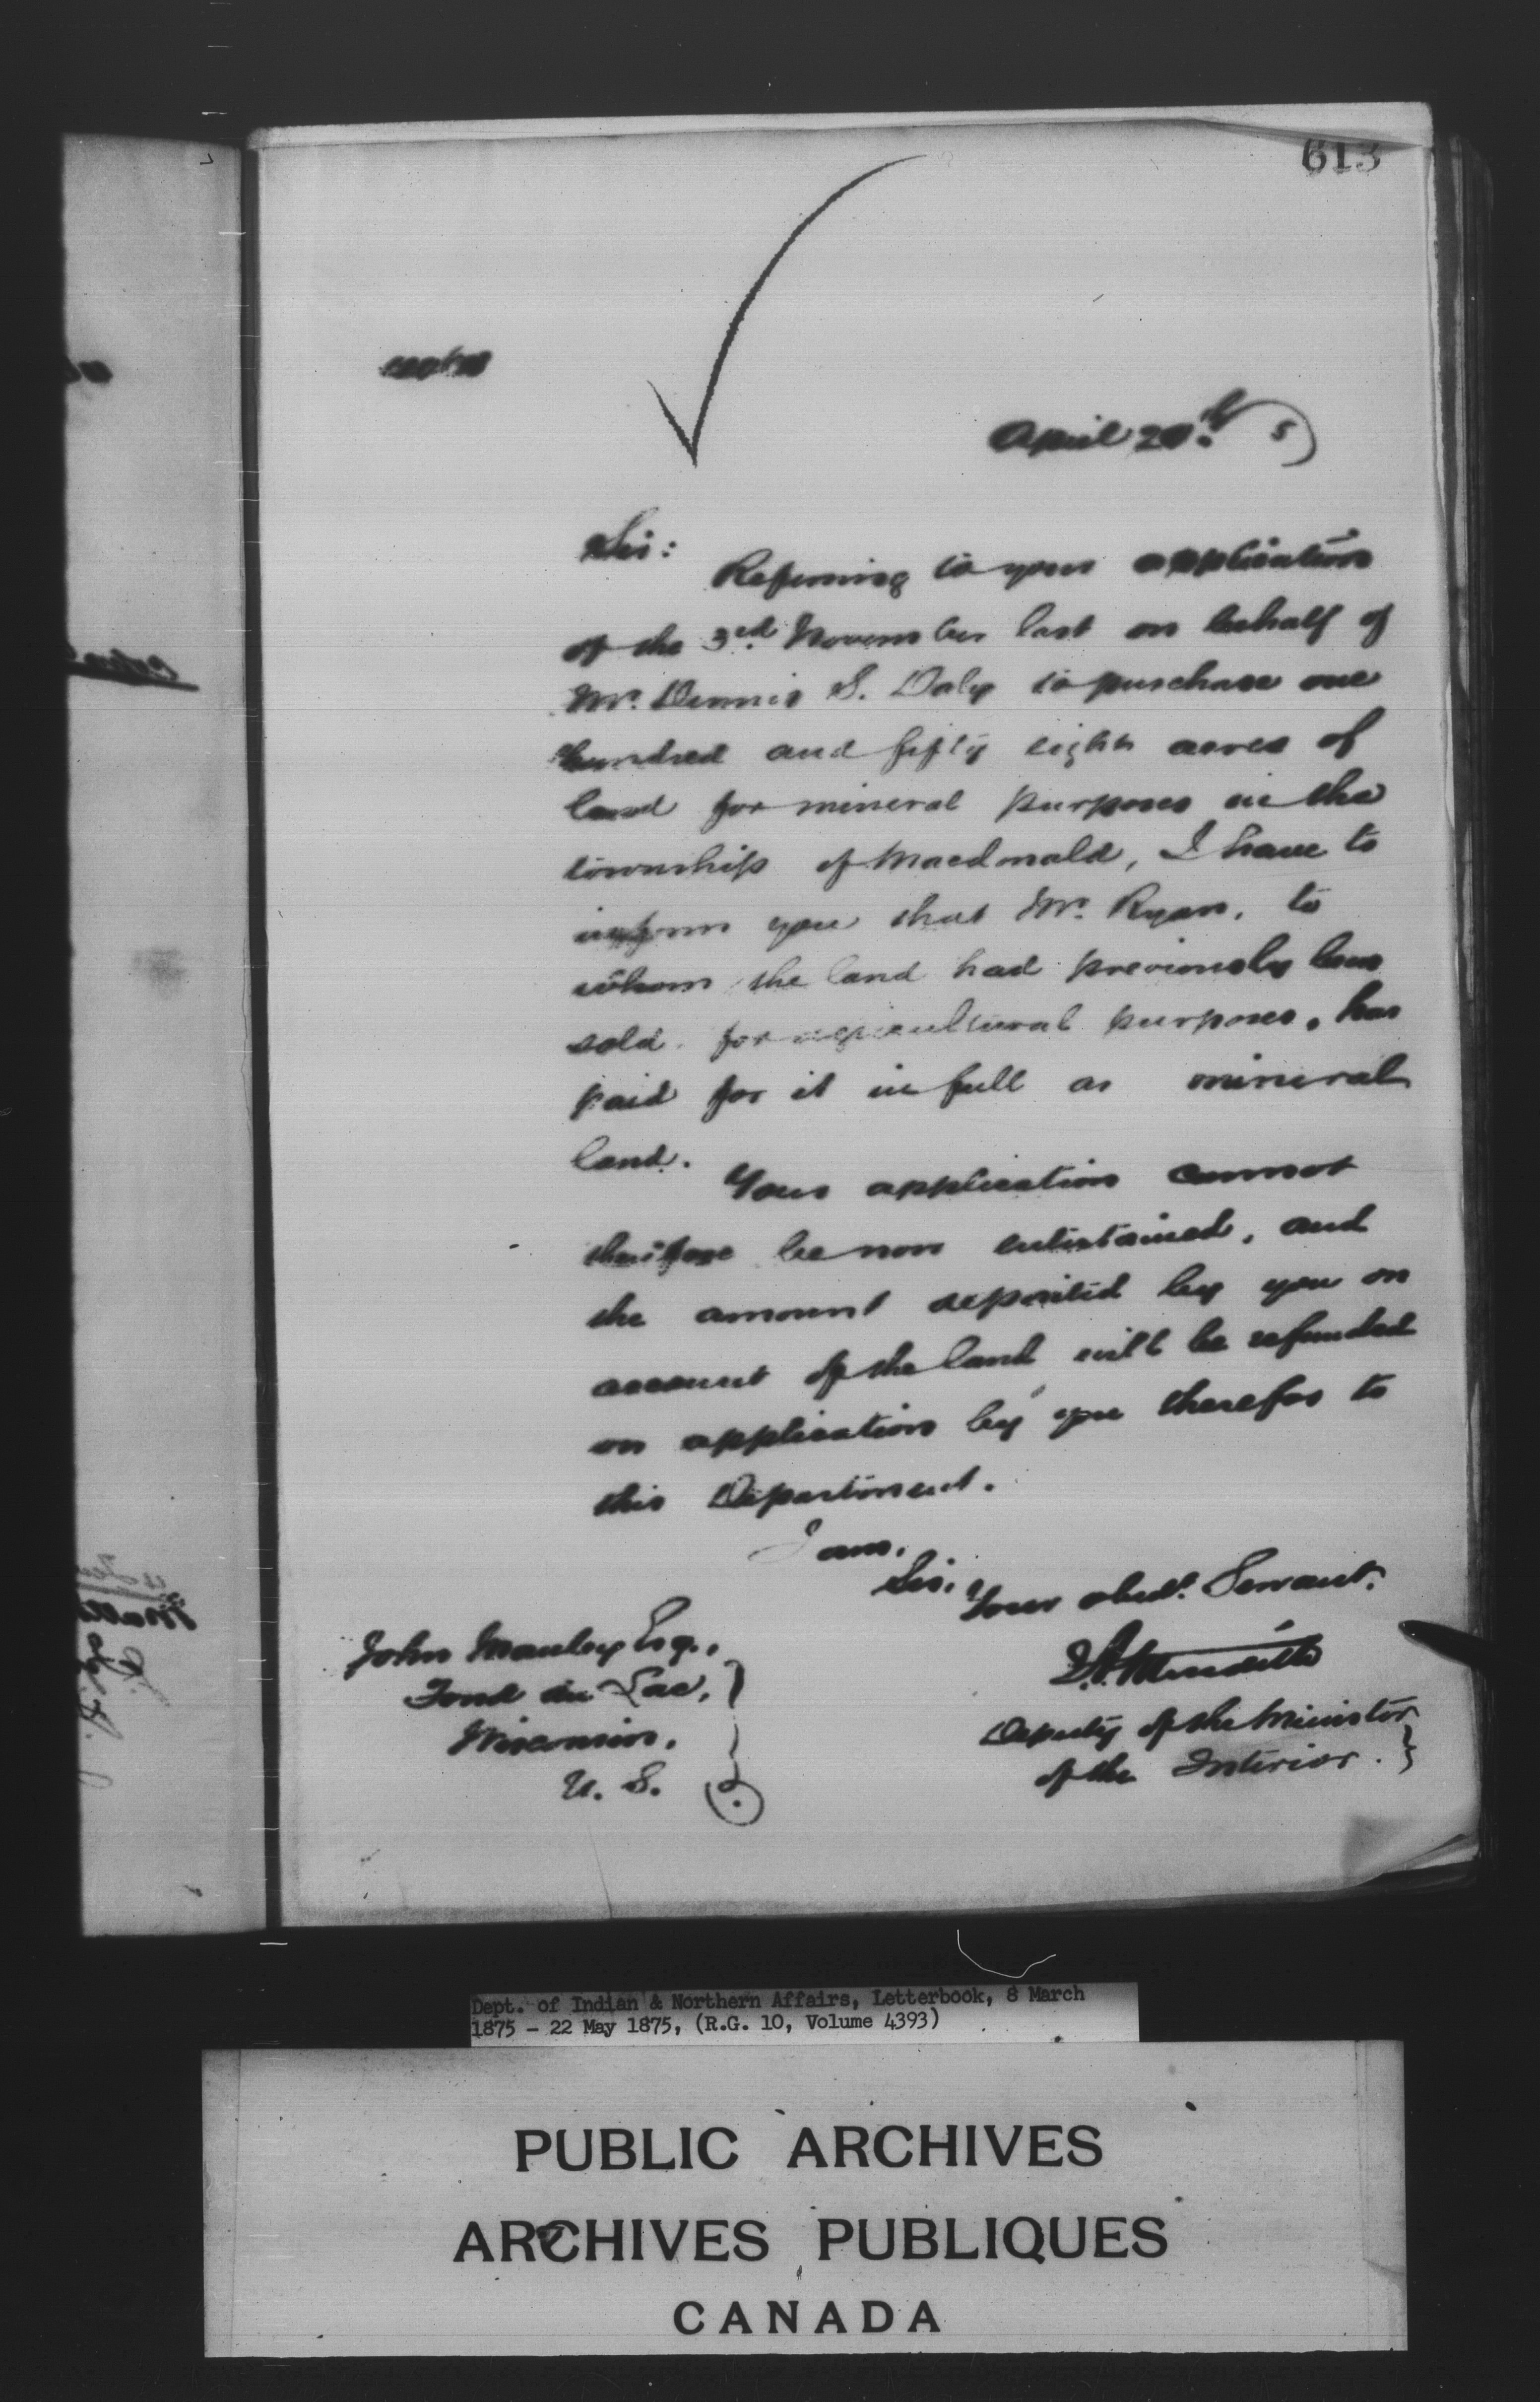 613
April 20th 5
Sir:
Referring to your application
of the 3rd November last on behalf of
Mr. Dennis S. Daly to purchase one
hundred and fifty eight acres of
land for mineral purposes in the
township of Macdonald, I have to
inform you that Mr. Ryan, to
whom the land had previously been
sold for agricultural purposes, has
paid for it in full as mineral
land.
Your application cannot
therefore be now entertained, and
the amount deposited by you on
account of the land will be refunded
on application by you therefor to
this Department.
I am,
Sir,
Your obedt. Servant.
John Manley Esq.,
Fond du Lac,
Wisconsin,
U. S.
Deputy of the Minister
of the Interior.
Dept. of Indian & Northern Affairs, Letterbook, 8 March
1875 - 22 May 1875, (R.G. 10, Volume 4393)
PUBLIC ARCHIVES
ARCHIVES PUBLIQUES
CANADA